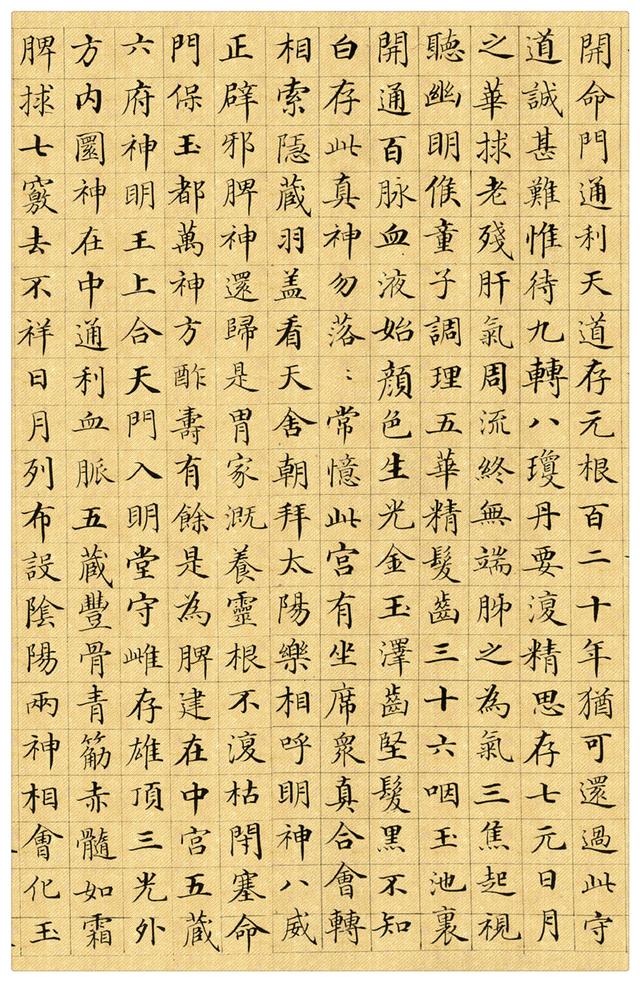 開命門通利天道存元根百二十年猶可還過此守
道誠甚難惟待九轉八瓊丹要復精思存七元日月
之華捄老殘肝氣周流終無端肺之為氣三焦起視
聽幽明候童子調理五華精髮齒三十六咽玉池裏
開通百脉血液始顏色生光金玉澤齒堅髮黑不知
白存此真神勿落〻常憶此宮有坐席衆真合會轉
相索隱藏羽盖看天舍朝拜太陽樂相呼明神八威
正辟邪脾神還歸是胃家溉養靈根不復枯閉塞命
門保玉都萬神方酢壽有餘是為脾建在中宮五藏
六府神明王上合天門入明堂守雌存雄頂三光外
方内圓神在中通利血脈五藏豐骨青筋赤髓如霜
脾捄七竅去不祥日月列布設陰陽兩神相會化玉